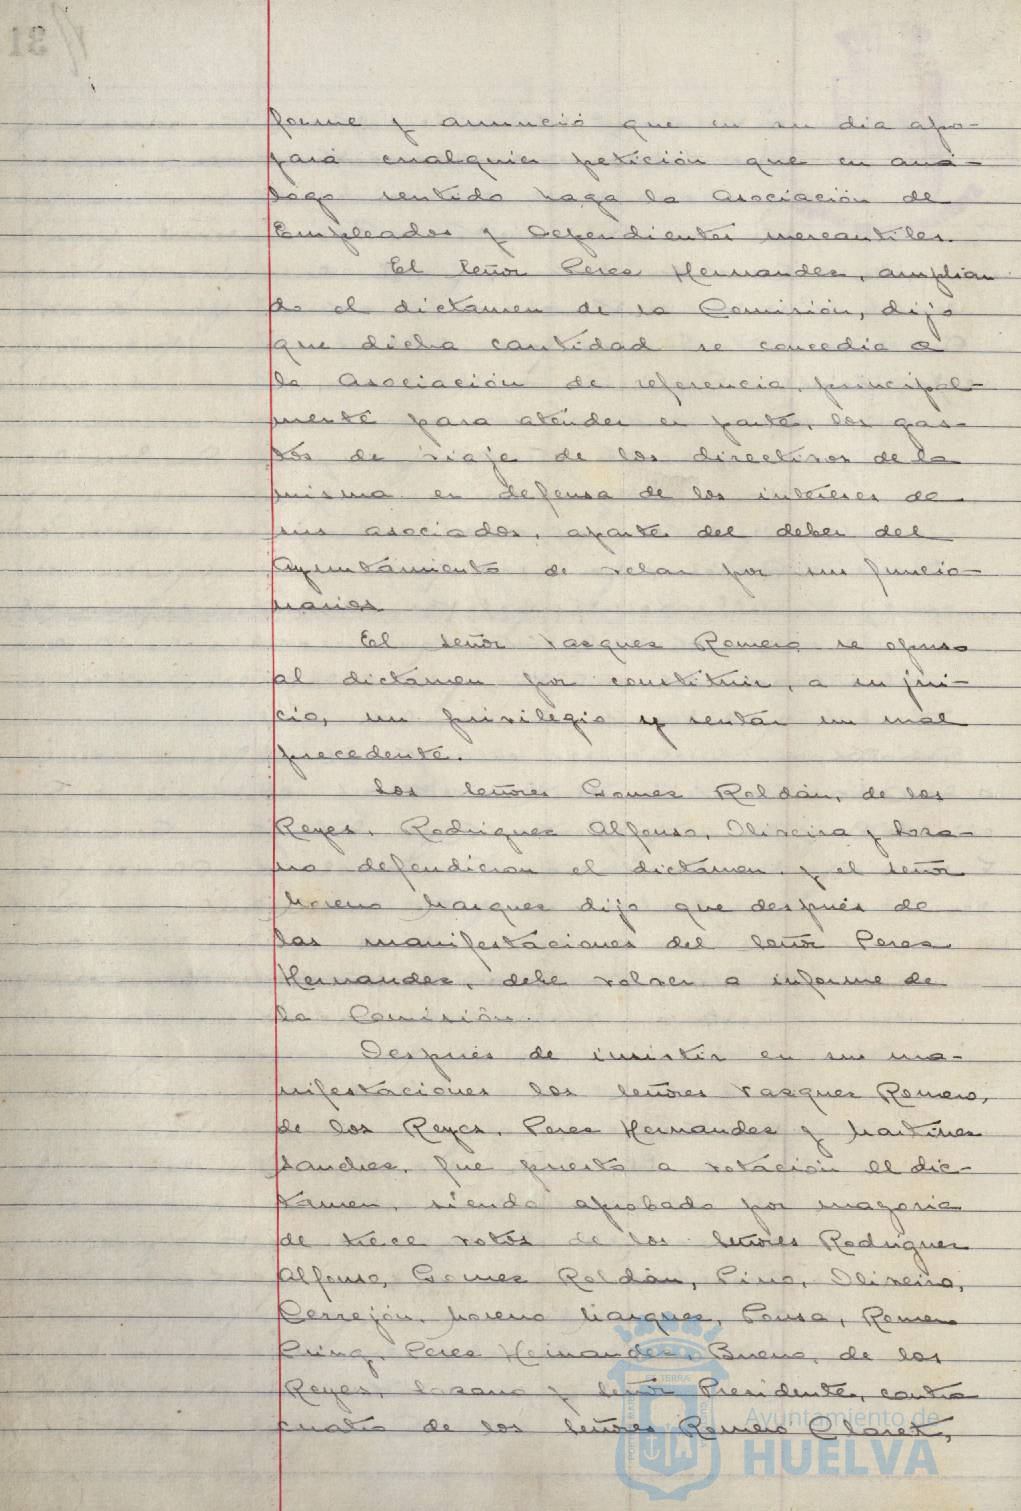 forme y anunció que en su dia apo-
yará cualquier petición que en aná-
logo sentido haga la Asociación de
Empleados y Dependientes mercantiles.
El Señor Perez Hernandez, amplian
do el dictamen de la Comisión, dijo
que dicha cantidad se concedia a
la Asociación de referencia, principal-
mente para atender en parte, los gas-
tos de viaje de los directivos de la
misma en defensa de los intereses de
sus asociados, aparte del deber del
Ayuntamiento de velar por sus funcio-
narios
El Señor Vazquez Romero se opuso
al dictamen por constituir, a su jui-
cio, un privilegio y sentar un mal
precedente.
Los Señores Gomez Roldán, de los
Reyes, Rodriguez Alfonso, Oliveira y Loza-
no defendieron el dictamen, y el Señor
Moreno Marquez dijo que después de
las manifestaciones del Señor Perez
Hernandez, debe volver a informe de
la Comisión.
Después de insistir en sus ma-
nifestaciones los Señores Vazquez Romero,
de los Reyes, Perez Hernandez y Martinez
Sanchez, fue puesto a votación el dic-
tamen, siendo aprobado por mayoria
de trece votos de los Señores Rodriguez
Alfonso, Gomez Roldán, Pino, Oliveira,
Cerrejón, Moreno Marquez, Ponsa, Romero
Perez Hernandez, Bueno, de los
Reyes, Lozano y Señor Presidente, contra
cuatro de los Señores Romero Claret,
Ayuntamiento de
HUELVA
31